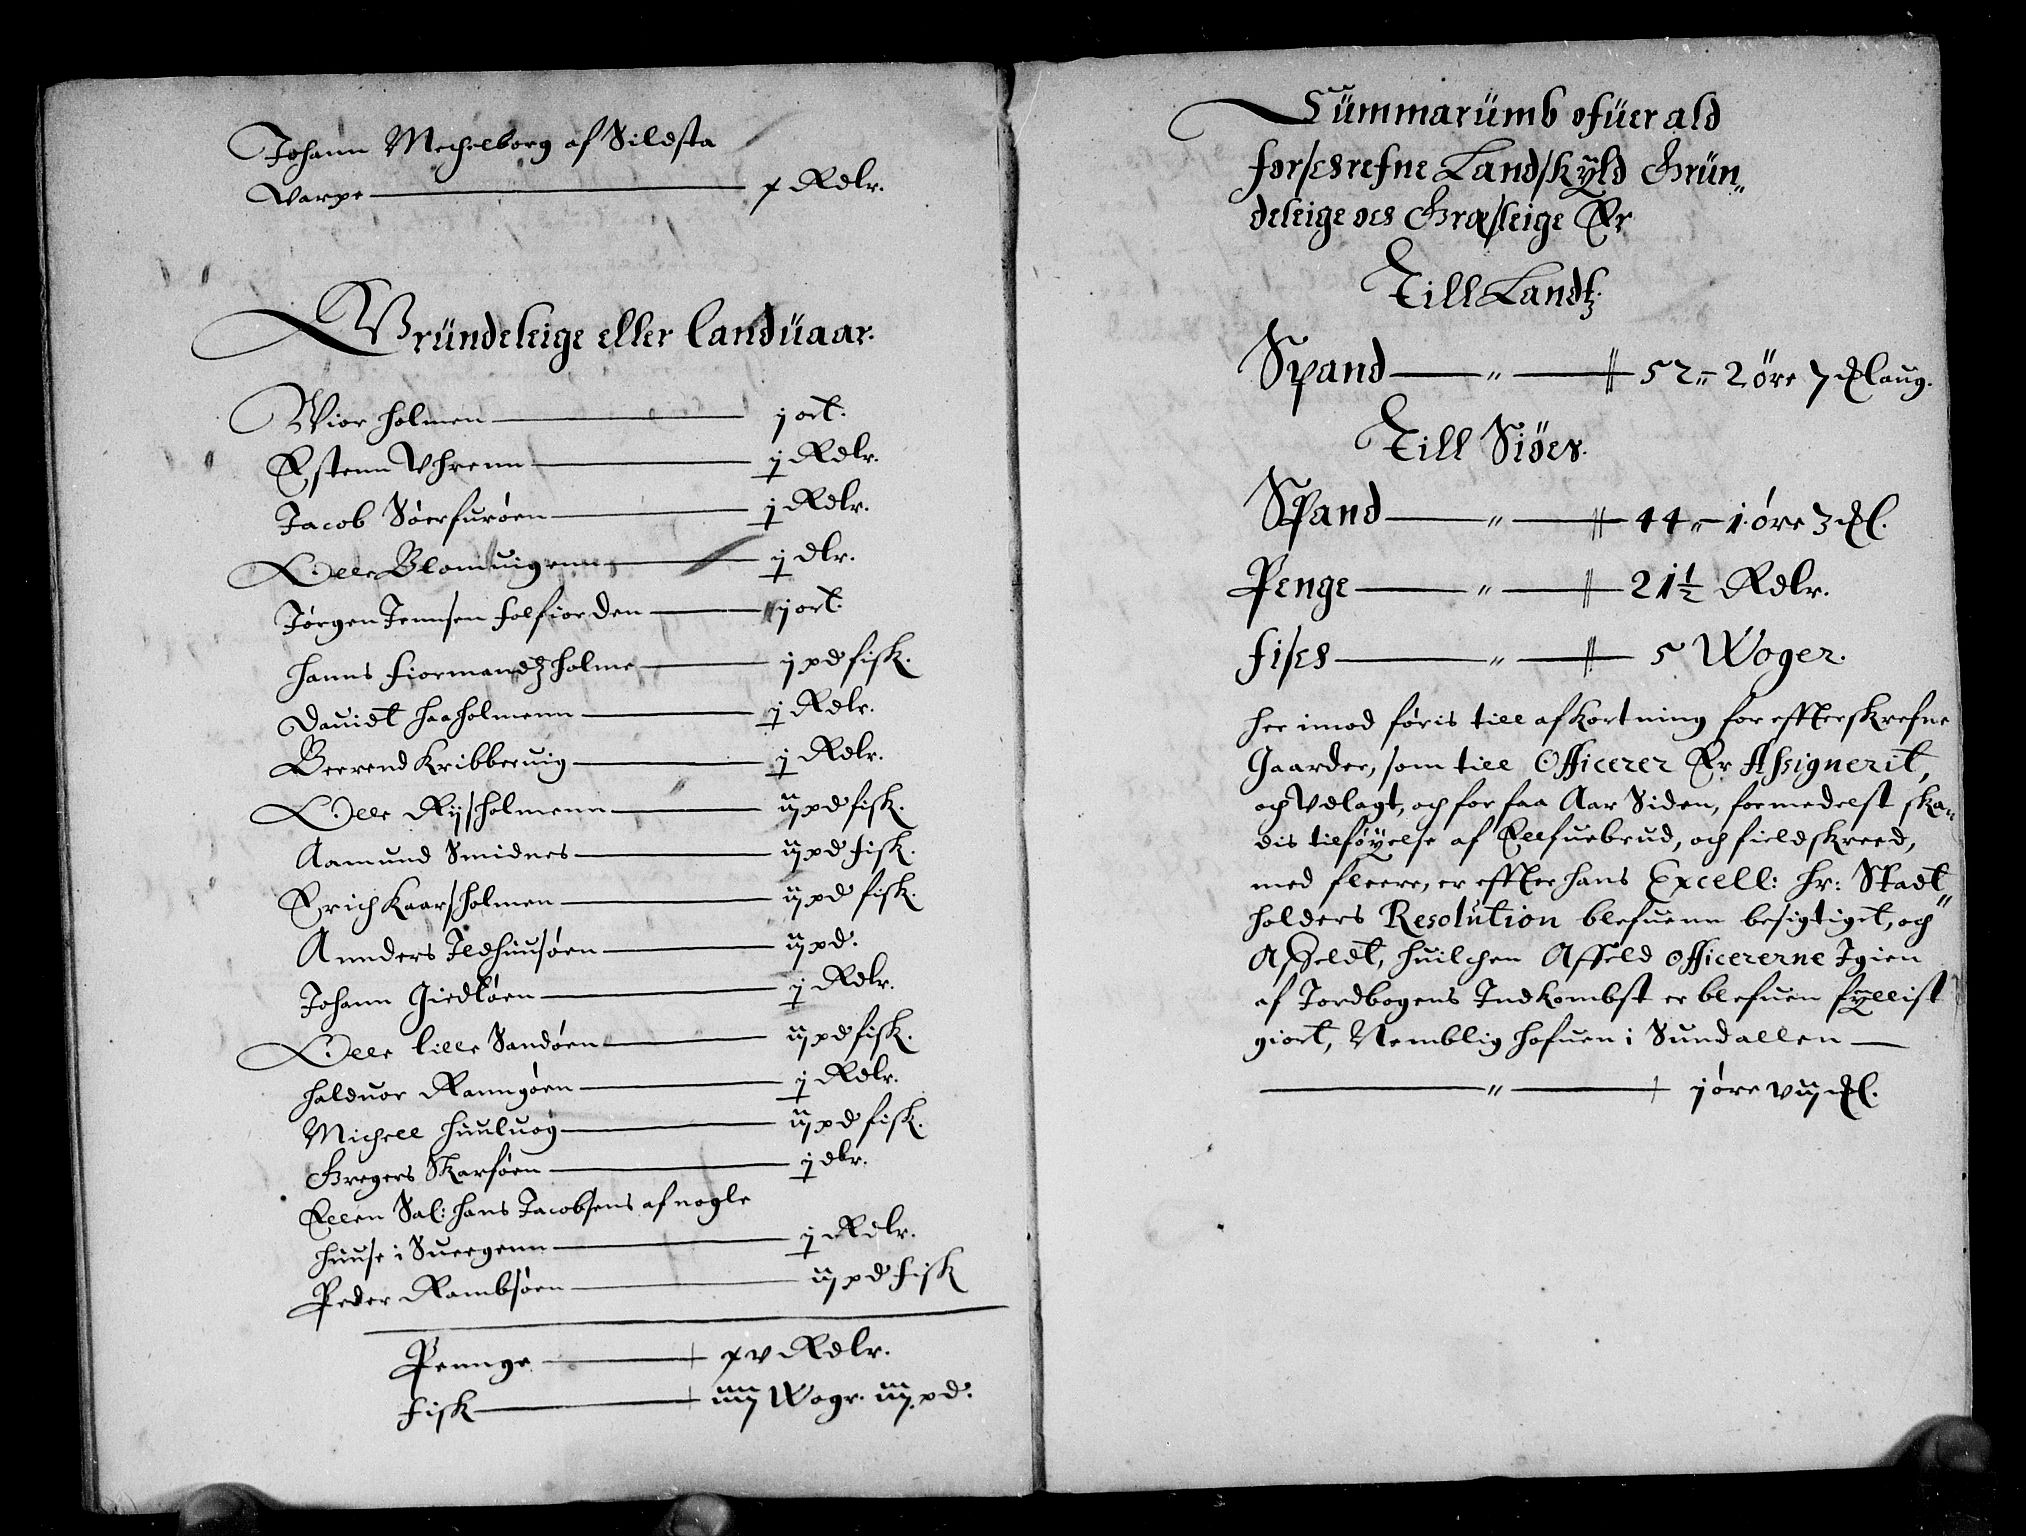 Johann Mechelborg af Sildsta
Warpe — x Rdlr.
Gründeleige eller Landüaar.
Wior holmen — j ort.
Estenn Vhrenn — j Rdlr.
Jacob Söerfuröen — j Rdlr.
Olle Blomuigenn — j dlr.
Jørgen Jennsen folfiorden — j ort.
Hanns Fiormandtz holme — j pd fisk.
Dauidt Haaholmenn — j Rdlr.
Beerend Kribberuig — j Rdlr.
Olle Rijsholmenn — ij pd fisk.
Aamund Smidnes — ij pd fisk.
Erich Kaarsholmen — ij pd fisk.
Annders Ildhuusøen — ij pd.
Johann Giedtøen — j Rdlr.
Olle lille Sandøen — ij pd fisk.
Halduor Ramsøen — j Rdlr.
Michell Huuluog — ij pd fisk.
Gregers Skarsøen — j dlr.
Ellen Sal: Hans Jacobsens af nogle
huuse i Suergenn — j Rdlr.
Peder Rambsøen — ij pd fisk
Pennge — xv Rdlr.
Fisk — iiij Wogr. iij pd.
Summarümb ofüer ald
forscrefne Landskÿld Grün„
deleige oc Græsleige Er
Till Landtz.
Spand — „ — 52 „ 2 öre 7 Kl aug.
Till Siöes.
Spand — „ — 44 „ 1 öre 3 Kl.
Penge — „ — 21½ Rdlr.
Fisch — „ — 5 Woger.
Her imod føris till afkortning for effterskrefne
Gaarder, som till Officerer Er Assignerit,
och Vdlagt, och for faa Aar Siden, formedelst ska„
dis tilføÿelse af Ellfuebrud, och fieldskreed,
med fleere, er effter hans Excell: Hr: Stadt„
holders Resolution blefuenn besigtiget, och
Affeldt, huilchen Affeld Officererne Igien
af Jordbogens Indkombst er blefuen fÿllist
giort, Nemblig Hofuen i Sundallen —
— „ — j øre vij Kl.